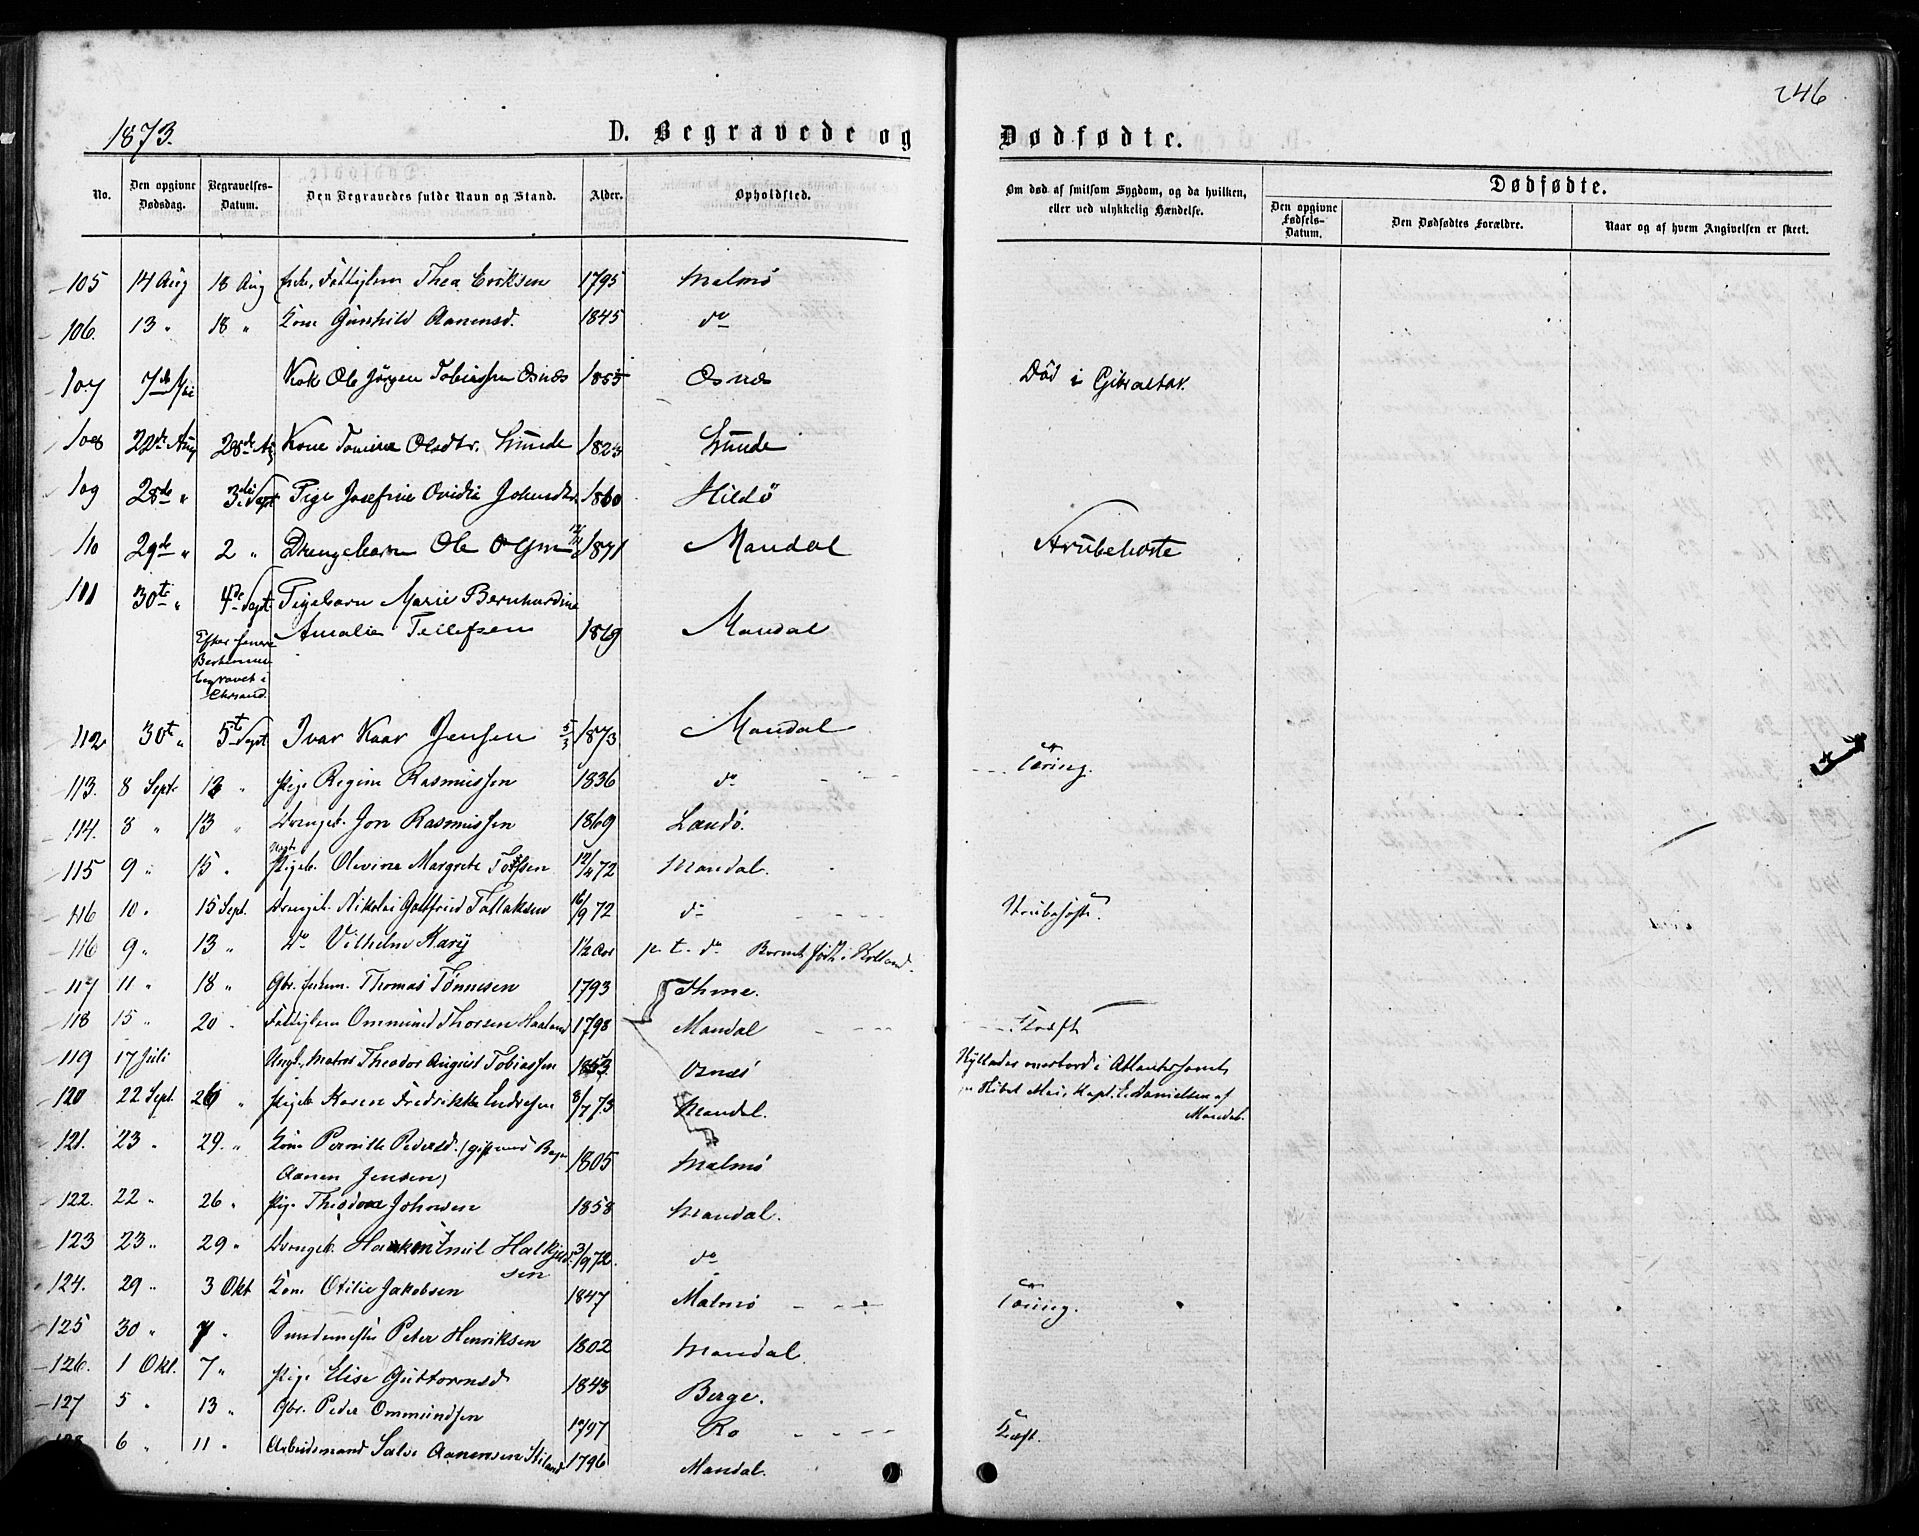 246
1873.
D. Begravede og Dødfødte.
No. Den opgivne Dødsdag. Begravelses-Datum. Den Begravedes fulde Navn og Stand. Alder. Opholdsted. Om død af smitsom Sygdom, og da hvilken, eller ved ulykkelig Hændelse. Dødfødte.
Den opgivne Fødsels-Datum. Den Dødfødtes Forældre. Naar og af hvem Angivelsen er skeet.
105 14 Aug 18 Aug Enke, Fattiglem Thea Eriksen 1795 Malmø
106. 13 " 18 " Kone Gunhild Aanensd. 1845 do
107 7de Kok Ole Jörgen Tobiassen Osnæs 1855 Osnæs Död i Gibraltar.
108 22de Aug 28de Au Kone Tomine Olsdtr. Lunde 1823 Lunde
109 28de " 3die Sept Pige Josefine Ovidia Johnsdtr. 1860 Hildö
110 29de " 2 " Drengebarn Ole Olsen 1871 Mandal Strubehoste
111 30te " 4de Sept Pigebarn Marie Bernhardine
Amalie Tellefsen 1869 Mandal
Efter
begravet i
Chrsand.
112 30te " 5te Sept Ivar Kaar Jensen 5/3 1873 Mandal
113. 8 Sept. 12 " Pige Regine Rasmussen 1836 do Tæring.
114. 8 " 13 " Drengeb. Jon Rasmussen 1869 Landö.
115 9 " 15 " Pigeb. Olevine Margrete 12/4 72 Mandal.
116 10 " 15 Sept. Drengeb. Nikolai Gottfried Tallaksen 16/9 72 do Strubehoste.
116 9 " 13 " Do Vilhelm Kary 1½ Aar p. t. do Barnet født i Holland.
117 11 " 18 " Gbr. Thomas Tönnesen 1793 Ihme.
118 15 " 20 " Fattiglem Ommund Thorsen Haaland 1798 Mandal Kræft
119 17 Juli Ungk., Matros Theodor August Tobiassen 1853 Osnæs Skylledes overbord i Atlanterhavet
Kapt. E. Danielsen af
Mandal.
120 22 Sept. 26 " Pigeb. Karen Fredrikke Endresen 8/7 73 Mandal.
121. 23 " 29. " Kone Pernille Pedersd. (gift med
Aanen Jensen) 1805 Malmö
122. 22 " 26 " Pige Theodora Johnsen 1858 Mandal.
123 23 " 29 " Drengeb. Haaken Emil Halkjeld-
sen 3/9 72. do
124. 29 " 3 Okt Kone Otilie Jakobsen 1847 Malmö Tæring.
125 30 " 7 " Peter Henriksen 1802 Mandal.
126. 1 Okt. 7 " Pige Elise Guttormsd 1843 Berge.
127 5 " 13 " Gbr. Peder Ommundsen 1797 Ro Kræft.
6 " 11 " Arbeidsmand Salve Aanensen Stiland 1796 Mandal.